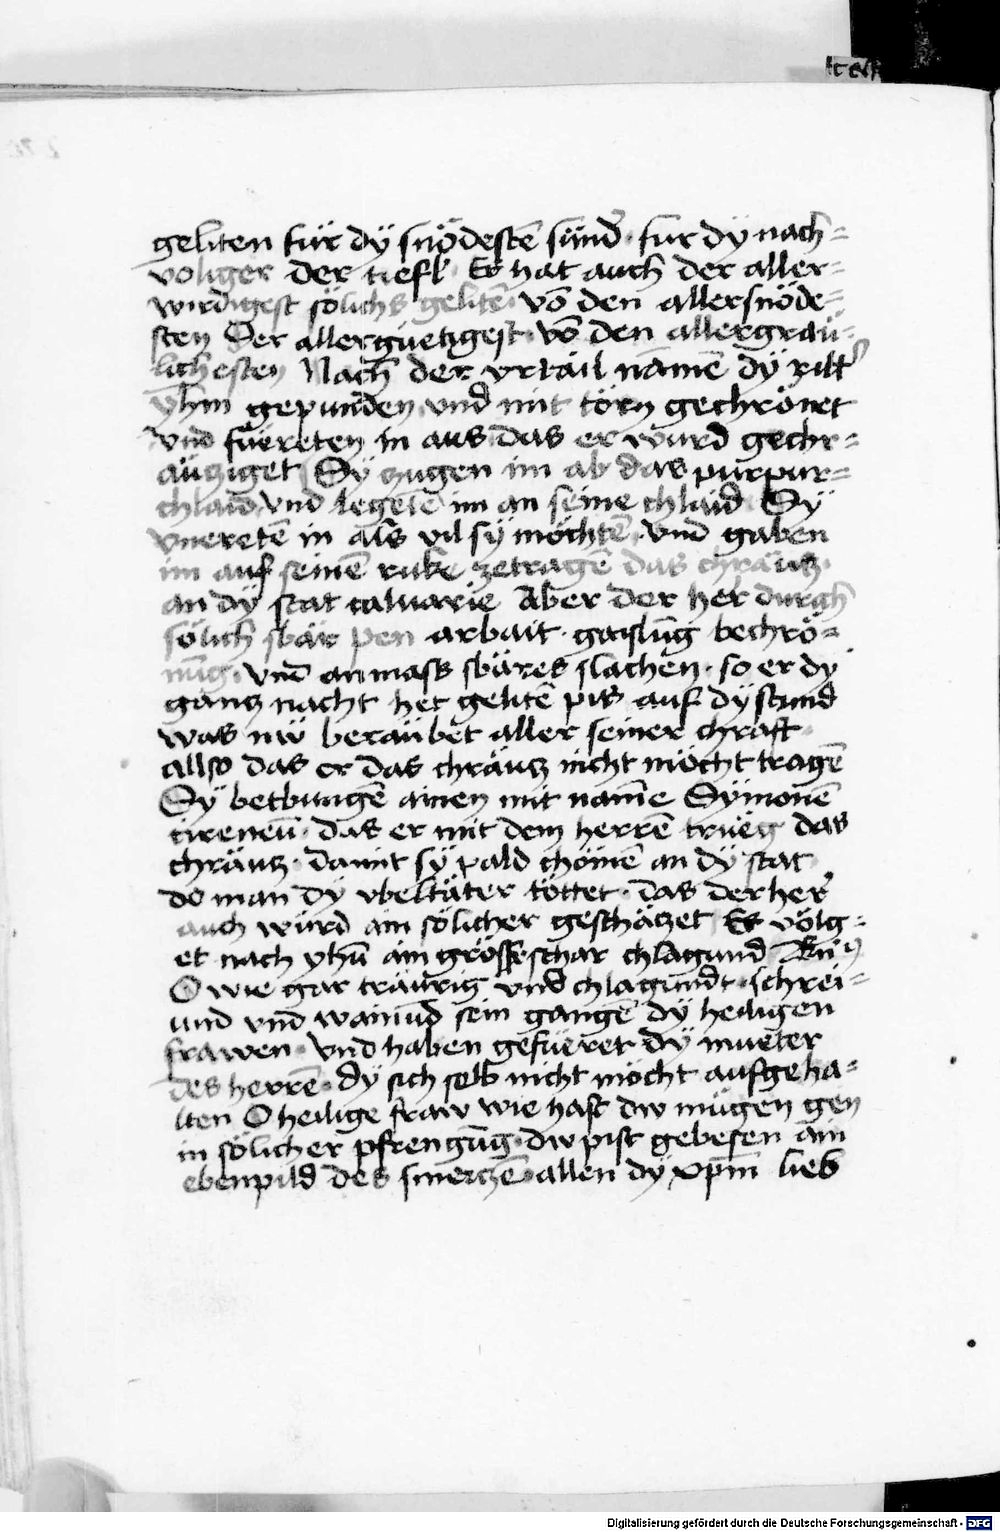 geliten für dÿ snödestē sünd̕ · fur dÿ nach⸗
volliger der tiefl · Er hat auch der aller⸗
wirdigest sölichs gelitē · vō den allersnöde⸗
sten Der allergüetigest · vō den allergraü⸗
lichesten Nach der vrtāil nāmē dÿ ritt̕
yhm gepunden vnd mit törn gechrönet
vnd füereten in aus das er wurd gechr⸗
äüziget Sÿ zugen im ab das purpur⸗
chlaid vnd legetē im an seine chlaid Sÿ
vneretē in als vil sÿ möchtē · vnd gaben
im auf seinē ruke zetragē das chräuz ·
an dÿ stat caluarie Aber der her durch
sölich sbär pen arbait · gaislūg bechrö⸗
nūg · vnd an mass sbäres slachen · so er dÿ
ganz nacht het gelitē pis auf dÿ stund
was nw beraübet aller seiner chraft ·
allso das er das chräuz nicht möcht tragē
Sÿ betbungē ainen mit namē Sÿmonē
cireneū · das er mit dem herrē trüeg das
chräuz · damit sÿ pald chömē an dÿ stat
do man dÿ vbeltäter töttet · das der her̕
auch würd ain sölicher geschäzet Es völg⸗
et nach yhū ain grösse schar chlagund
O wie gar träurig vnd chlagundt · schrei⸗
und vnd wainūd sein gangē dÿ heiligen
frawen · vnd haben gefüeret dÿ mueter
des herrē · dÿ sich selb nicht möcht aufgeha⸗
lten O heilige fraw wie hast dw mügen gen
in sölicher pfrengūg · dw pist gebesen ain
ebenpild des smerczē · allen dÿ xp̄m lieb
Digitalisierung gefördert durch die Deutsche Forschungsgemeinschaft - DFG